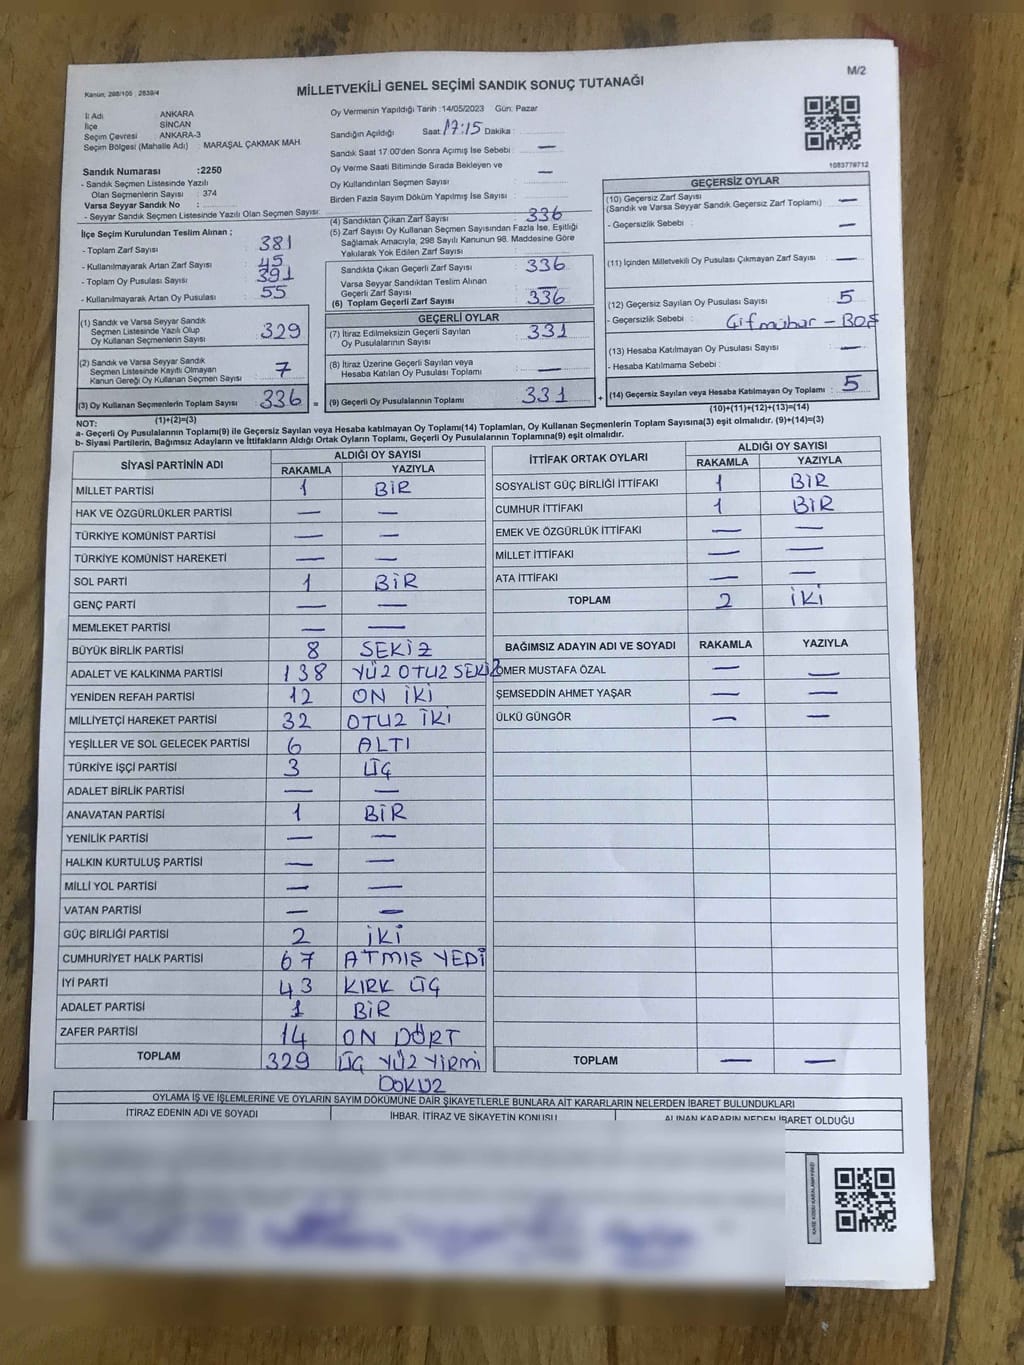 M/2
Kanun, 298/105 ; 2839/4
MİLLETVEKİLİ GENEL SEÇİMİ SANDIK SONUÇ TUTANAĞI
İl Adı : ANKARA
İlçe : SİNCAN
Seçim Çevresi : ANKARA-3
Seçim Bölgesi (Mahalle Adı) : MARAŞAL ÇAKMAK MAH.
Sandık Numarası :2250
- Sandık Seçmen Listesinde Yazılı
Olan Seçmenlerin Sayısı : 374
Varsa Seyyar Sandık No :
- Seyyar Sandık Seçmen Listesinde Yazılı Olan Seçmen Sayısı:
Oy Vermenin Yapıldığı Tarih :14/05/2023 Gün: Pazar
Sandığın Açıldığı Saat: 17:15 Dakika :
Sandık Saat 17:00'den Sonra Açımış İse Sebebi : —
Oy Verme Saati Bitiminde Sırada Bekleyen ve
Oy Kullandırılan Seçmen Sayısı : —
Birden Fazla Sayım Döküm Yapılmış İse Sayısı :
1083779712
İlçe Seçim Kurulundan Teslim Alınan ;
- Toplam Zarf Sayısı : 381
- Kullanılmayarak Artan Zarf Sayısı : 45
- Toplam Oy Pusulası Sayısı : 391
- Kullanılmayarak Artan Oy Pusulası : 55
(1) Sandık ve Varsa Seyyar Sandık
Seçmen Listesinde Yazılı Olup
Oy Kullanan Seçmenlerin Sayısı : 329
(2) Sandık ve Varsa Seyyar Sandık
Seçmen Listesinde Kayıtlı Olmayan
Kanun Gereği Oy Kullanan Seçmen Sayısı : 7
(3) Oy Kullanan Seçmenlerin Toplam Sayısı : 336
(1)+(2)=(3)
(4) Sandıktan Çıkan Zarf Sayısı : 336
(5) Zarf Sayısı Oy Kullanan Seçmen Sayısından Fazla İse, Eşitliği
Sağlamak Amacıyla, 298 Sayılı Kanunun 98. Maddesine Göre
Yakılarak Yok Edilen Zarf Sayısı :
Sandıkta Çıkan Geçerli Zarf Sayısı : 336
Varsa Seyyar Sandıktan Teslim Alınan
Geçerli Zarf Sayısı : —
(6) Toplam Geçerli Zarf Sayısı : 336
GEÇERLİ OYLAR
(7) İtiraz Edilmeksizin Geçerli Sayılan
Oy Pusulalarının Sayısı : 331
(8) İtiraz Üzerine Geçerli Sayılan veya
Hesaba Katılan Oy Pusulası Toplamı : —
= (9) Geçerli Oy Pusulalarının Toplamı : 331 +
GEÇERSİZ OYLAR
(10) Geçersiz Zarf Sayısı
(Sandık ve Varsa Seyyar Sandık Geçersiz Zarf Toplamı) : —
- Geçersizlik Sebebi : —
(11) İçinden Milletvekili Oy Pusulası Çıkmayan Zarf Sayısı : —
(12) Geçersiz Sayılan Oy Pusulası Sayısı : 5
- Geçersizlik Sebebi : Çifmühür - BOŞ
(13) Hesaba Katılmayan Oy Pusulası Sayısı : —
- Hesaba Katılmama Sebebi :
(14) Geçersiz Sayılan veya Hesaba Katılmayan Oy Toplamı : 5
(10)+(11)+(12)+(13)=(14)
NOT:
a- Geçerli Oy Pusulalarının Toplamı(9) ile Geçersiz Sayılan veya Hesaba katılmayan Oy Toplamı(14) Toplamları, Oy Kullanan Seçmenlerin Toplam Sayısına(3) eşit olmalıdır. (9)+(14)=(3)
b- Siyasi Partilerin, Bağımsız Adayların ve İttifakların Aldığı Ortak Oyların Toplamı, Geçerli Oy Pusulalarının Toplamına(9) eşit olmalıdır.
SİYASİ PARTİNİN ADI ALDIĞI OY SAYISI
RAKAMLA YAZIYLA
MİLLET PARTİSİ 1 BİR
HAK VE ÖZGÜRLÜKLER PARTİSİ — —
TÜRKİYE KOMÜNİST PARTİSİ — —
TÜRKİYE KOMÜNİST HAREKETİ — —
SOL PARTİ 1 BİR
GENÇ PARTİ — —
MEMLEKET PARTİSİ — —
BÜYÜK BİRLİK PARTİSİ 8 SEKİZ
ADALET VE KALKINMA PARTİSİ 138 YÜZ OTUZ SEKİZ
YENİDEN REFAH PARTİSİ 12 ON İKİ
MİLLİYETÇİ HAREKET PARTİSİ 32 OTUZ İKİ
YEŞİLLER VE SOL GELECEK PARTİSİ 6 ALTI
TÜRKİYE İŞÇİ PARTİSİ 3 ÜÇ
ADALET BİRLİK PARTİSİ — —
ANAVATAN PARTİSİ 1 BİR
YENİLİK PARTİSİ — —
HALKIN KURTULUŞ PARTİSİ — —
MİLLİ YOL PARTİSİ — —
VATAN PARTİSİ — —
GÜÇ BİRLİĞİ PARTİSİ 2 İKİ
CUMHURİYET HALK PARTİSİ 67 ATMIŞ YEDİ
İYİ PARTİ 43 KIRK ÜÇ
ADALET PARTİSİ 1 BİR
ZAFER PARTİSİ 14 ON DÖRT
TOPLAM 329 ÜÇ YÜZ YİRMİ
DOKUZ
İTTİFAK ORTAK OYLARI ALDIĞI OY SAYISI
RAKAMLA YAZIYLA
SOSYALİST GÜÇ BİRLİĞİ İTTİFAKI 1 BİR
CUMHUR İTTİFAKI 1 BİR
EMEK VE ÖZGÜRLÜK İTTİFAKI — —
MİLLET İTTİFAKI — —
ATA İTTİFAKI — —
TOPLAM 2 İKİ
BAĞIMSIZ ADAYIN ADI VE SOYADI RAKAMLA YAZIYLA
ÖMER MUSTAFA ÖZAL — —
ŞEMSEDDİN AHMET YAŞAR — —
ÜLKÜ GÜNGÖR — —
TOPLAM — —
OYLAMA İŞ VE İŞLEMLERİNE VE OYLARIN SAYIM DÖKÜMÜNE DAİR ŞİKAYETLERLE BUNLARA AİT KARARLARIN NELERDEN İBARET BULUNDUKLARI
İTİRAZ EDENİN ADI VE SOYADI İHBAR, İTİRAZ VE ŞİKAYETİN KONUSU ALINAN KARARIN NEDEN İBARET OLDUĞU